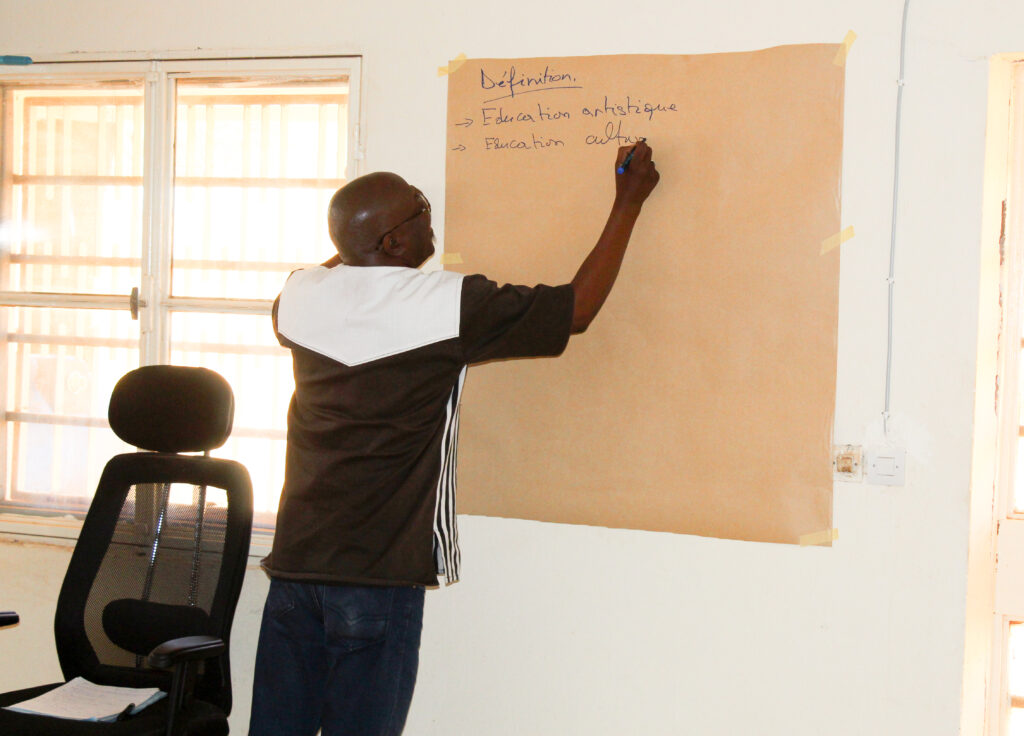 Définition.
→ Education artistique
→ Education cultu